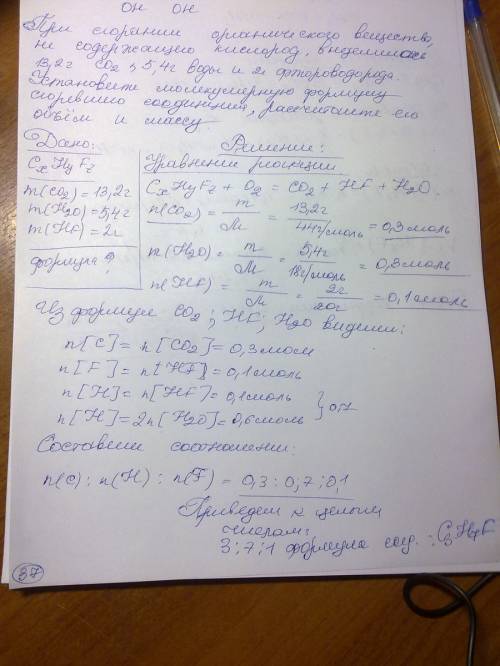 OH OH
При сгорании органического вещества,
не содержащего кислород, выделилось
13,2г CO₂, 5,4г воды и 2г фтороводорода.
Установите молекулярную формулу
сгоревшего соединения, рассчитайте его
объём и массу
Дано:
CxHyFz
m(CO₂) = 13,2г
m(H₂O) = 5,4г
m(HF) = 2г
формула?
Решение:
Уравнение реакции
CxHyFz + O₂ = CO₂ + HF + H₂O
n(CO₂) = m/M = 13,2г/44г/моль = 0,3моль
n(H₂O) = m/M = 5,4г/18г/моль = 0,3моль
n(HF) = m/M = 2г/20г = 0,1моль
Из формул CO₂; HF; H₂O видим:
n[C] = n[CO₂] = 0,3моль
n[F] = n[HF] = 0,1моль
n[H] = n[HF] = 0,1моль
n[H] = 2n[H₂O] = 0,6моль } 0,7
Составим соотношение:
n(C) : n(H) : n(F) = 0,3 : 0,7 : 0,1
Приведем к целым
числам:
3 : 7 : 1 формула соед. : C₃H₇F
37